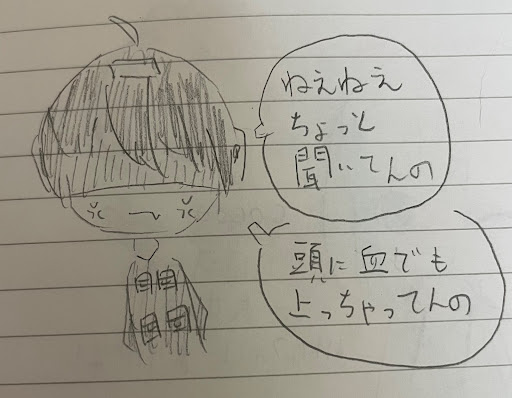 ねえねえ
ちょっと
聞いてんの
頭に血でも
上っちゃってんの